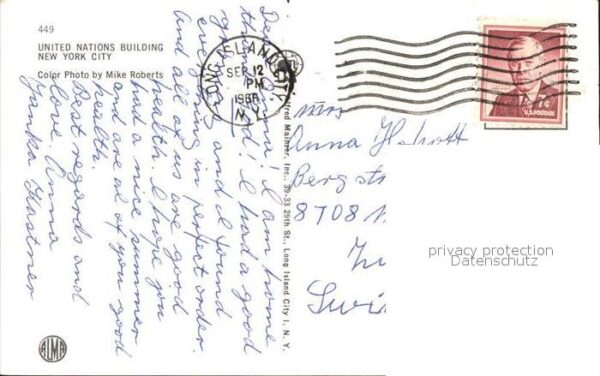 449
UNITED NATIONS BUILDING
NEW YORK CITY
Color Photo by Mike Roberts
Dear Anna! I am home
again and! I had a good
and I found
everything in perfect order.
And all of us are good
health. I hope you
had a nice summer
and are al of you good
health.
Best regards and
love. Anna
Kastner
Alfred Mainzer, Inc., 39-33 29th St., Long Island City 1, N. Y.
ALMA
LONG ISLAND CITY
SEP 12
PM
1966
N.Y.
7¢
U.S. POSTAGE
Mrs
Anna
Bergst
8708
privacy protection
Datenschutz